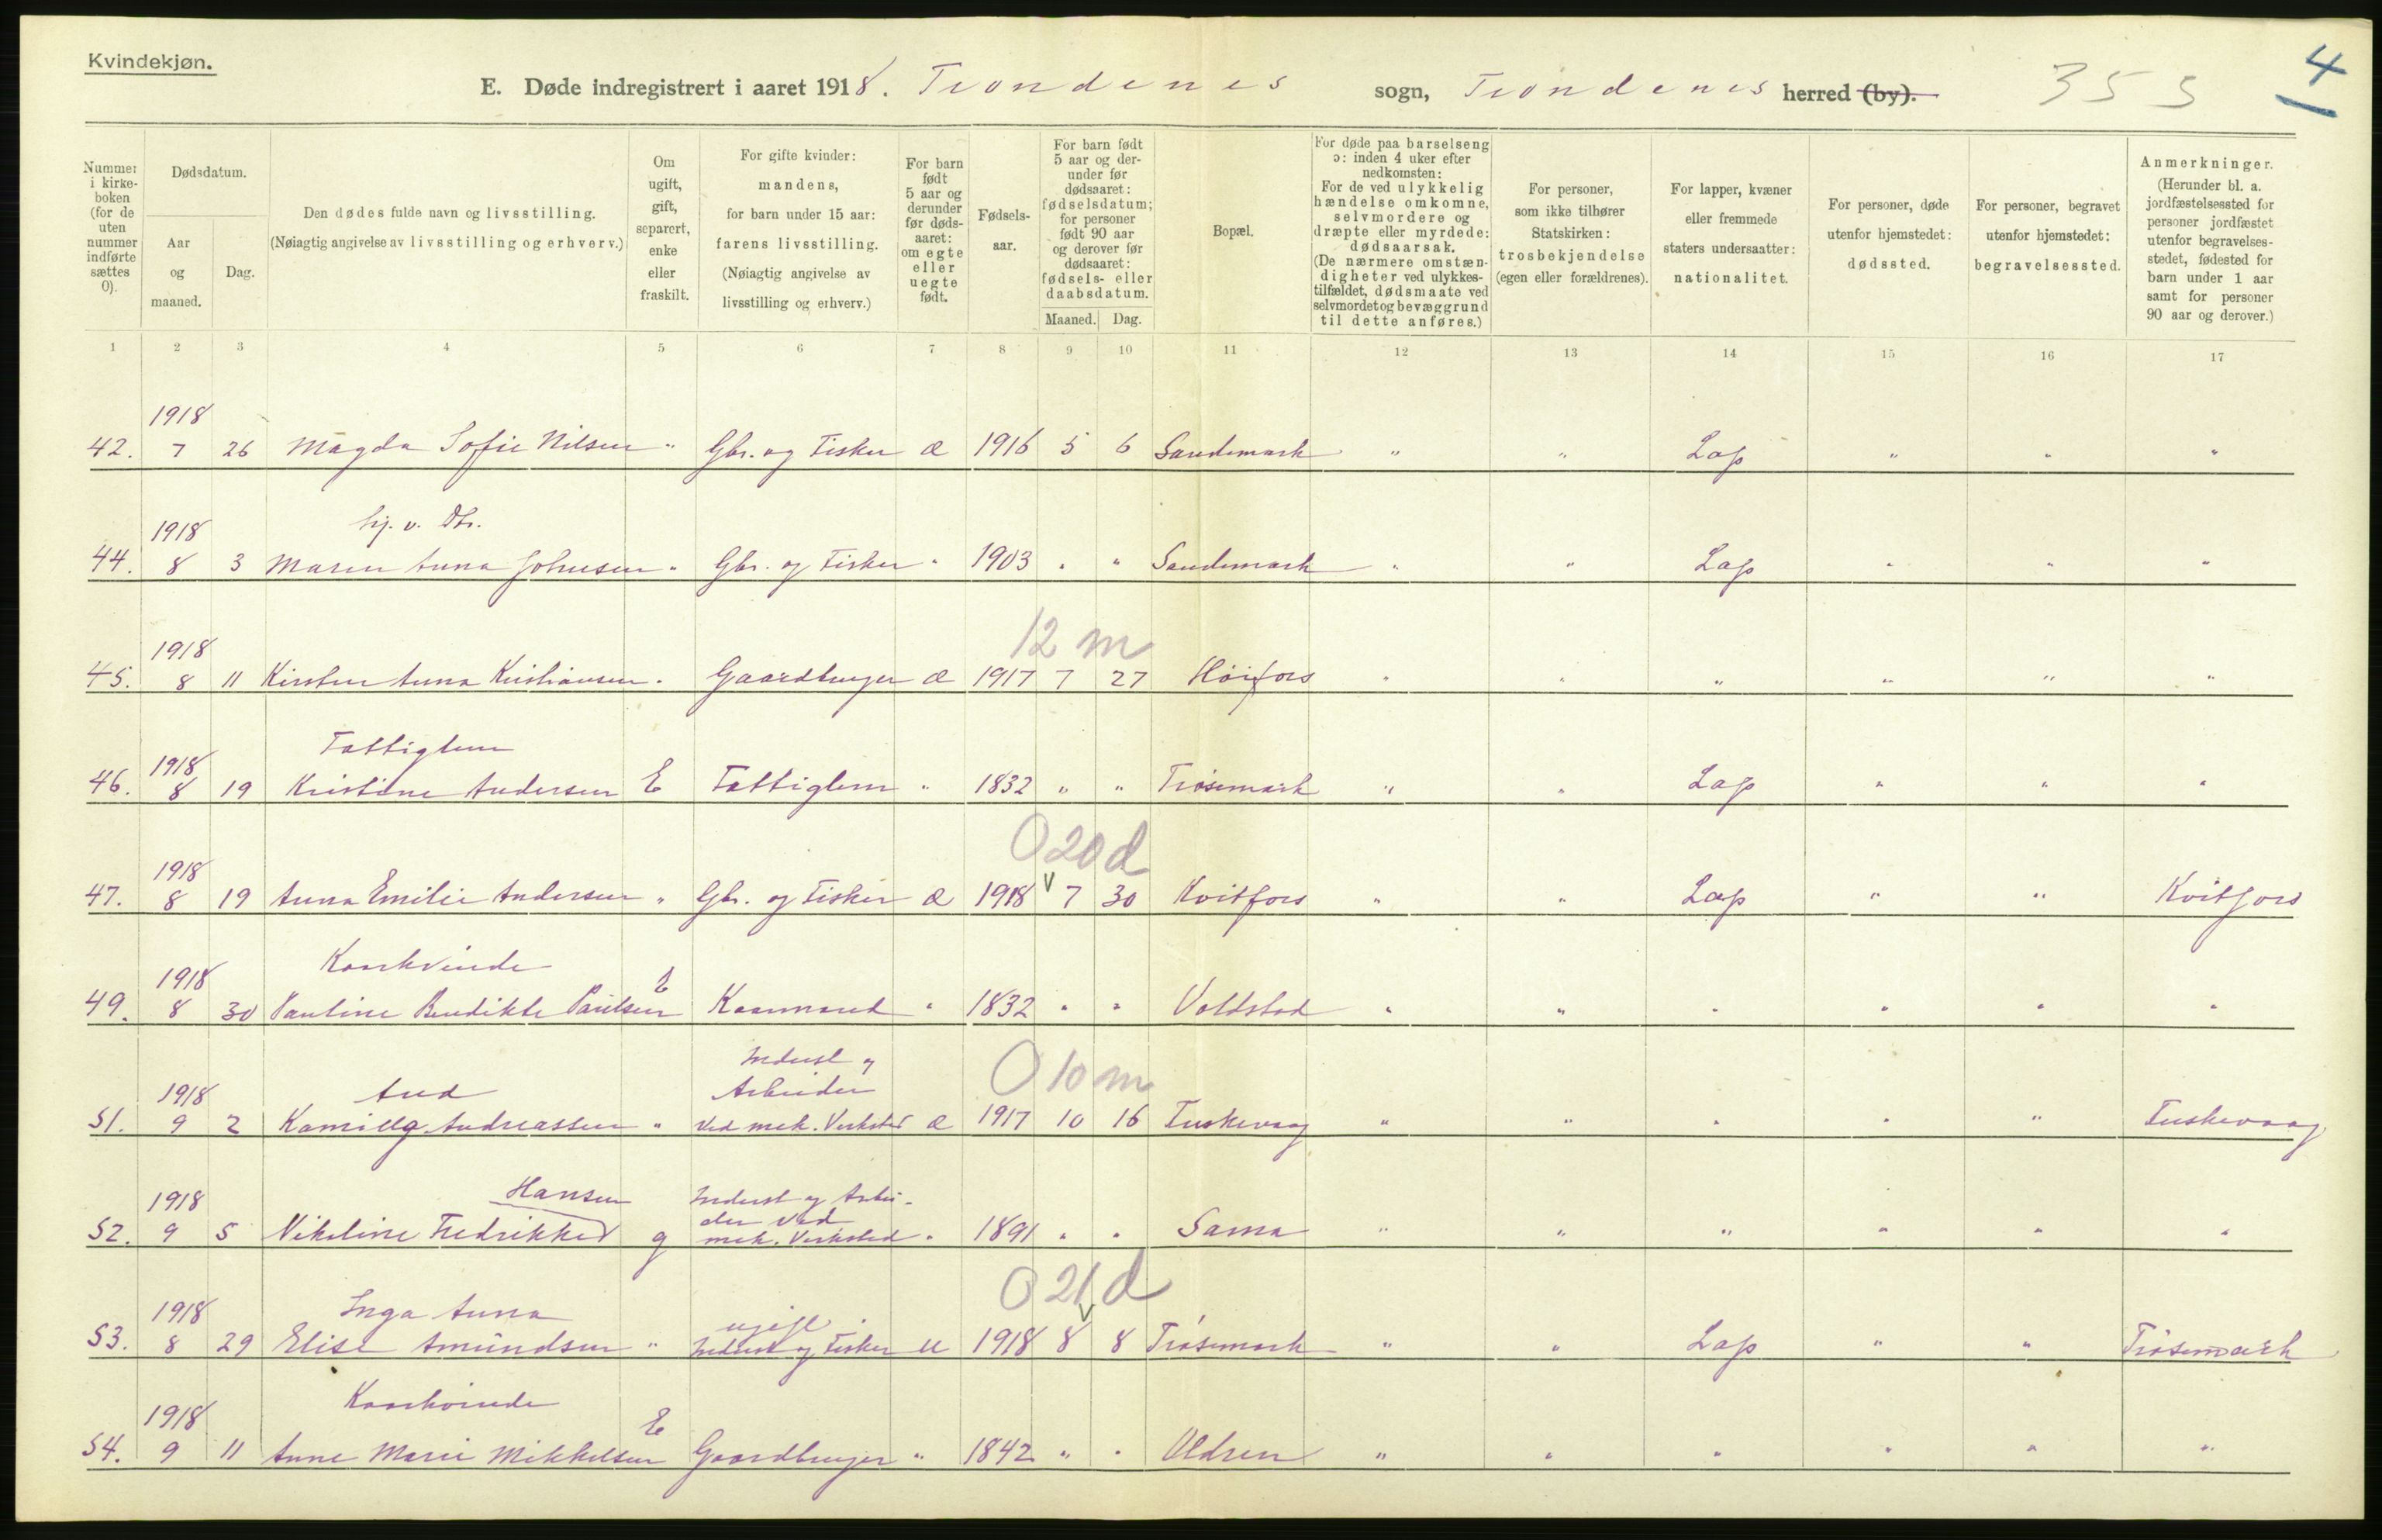 Kvindekjøn.
E. Døde indregistrert i aaret 1918. Trondenes sogn, Trondenes herred (by). 355 4
Nummer i kirkeboken (for de uten nummer indførte sættes 0).
Dødsdatum.
Aar og maaned.
Dag.
Den dødes fulde navn og livsstilling.
(Nøiagtig angivelse av livsstilling og erhverv.)
Om ugift, gift, separert, enke eller fraskilt.
For gifte kvinder: mandens, for barn under 15 aar: farens livsstilling. (Nøiagtig angivelse av livsstilling og erhverv.)
For barn født 5 aar og derunder før dødsaaret: om egte eller uegte født.
Fødselsaar.
For barn født 5 aar og derunder før dødsaaret: fødselsdatum; for personer født 90 aar og derover før dødsaaret: fødsels- eller daabsdatum.
Maaned. Dag.
Bopæl.
For døde paa barselseng ɔ: inden 4 uker efter nedkomsten: For de ved ulykkelig hændelse omkomne, selvmordere og dræpte eller myrdede: dødsaarsak. (De nærmere omstændigheter ved ulykkestilfældet, dødsmaate ved selvmordet og bevæggrund til dette anføres.)
For personer, som ikke tilhører Statskirken: trosbekjendelse (egen eller forældrenes).
For lapper, kvæner eller fremmede staters undersaatter: nationalitet.
For personer, døde utenfor hjemstedet: dødssted.
For personer, begravet utenfor hjemstedet: begravelsessted.
Anmerkninger. (Herunder bl. a. jordfæstelsessted for personer jordfæstet utenfor begravelsesstedet, fødested for barn under 1 aar samt for personer 90 aar og derover.)
1 2 3 4 5 6 7 8 9 10 11 12 13 14 15 16 17
1918
42. 7 26 Magda Sofie Nilsen " Gbr. og Fisker Æ 1916 5 6 Sandemark " " Lap " " "
1918 hj. v. Dtr.
44. 8 3 Maren Anna Johnsen " Gbr. og Fisker " 1903 " " Sandemark " " Lap " " "
1918 12 m
45. 8 11 Kirsten Anna Kristiansen " Gaardbruger Æ 1917 7 27 Høifors " " " " " "
1918 Fattiglem
46. 8 19 Kristine Andersen E Fattiglem " 1832 " " Trøsemark " " Lap " " "
1918 0 20 d
47. 8 19 Anna Emilie Andersen " Gbr. og Fisker Æ 1918 v 7 30 Kvitfors " " Lap " " Kvitfors
1918 Kaarkvinde
49. 8 30 Pauline Bendikte Paulsen E Kaarmand " 1832 " " Voldstad " " " " " "
1918 Aud Indust og Arbeider 0 10 m
51. 9 2 Kamilla Andreassen " ved mek. Verksted Æ 1917 10 16 Fuskevaag " " " " " Fuskevaag
1918 Hansen Indust og Arbeider ved
52. 9 5 Nikoline Fredrikke g mek. Verksted " 1891 " " Sama " " " " " "
1918 Inga Anna ugift 0 21 d
53. 8 29 Elise Amundsen " Indust og Fisker U 1918 v 8 8 Trøsemark " " Lap " " Trøsemark
1918 Kaarkvinde
54. 9 11 Anne Marie Mikkelsen E Gaardbruger " 1842 " " Aldren " " " " " "